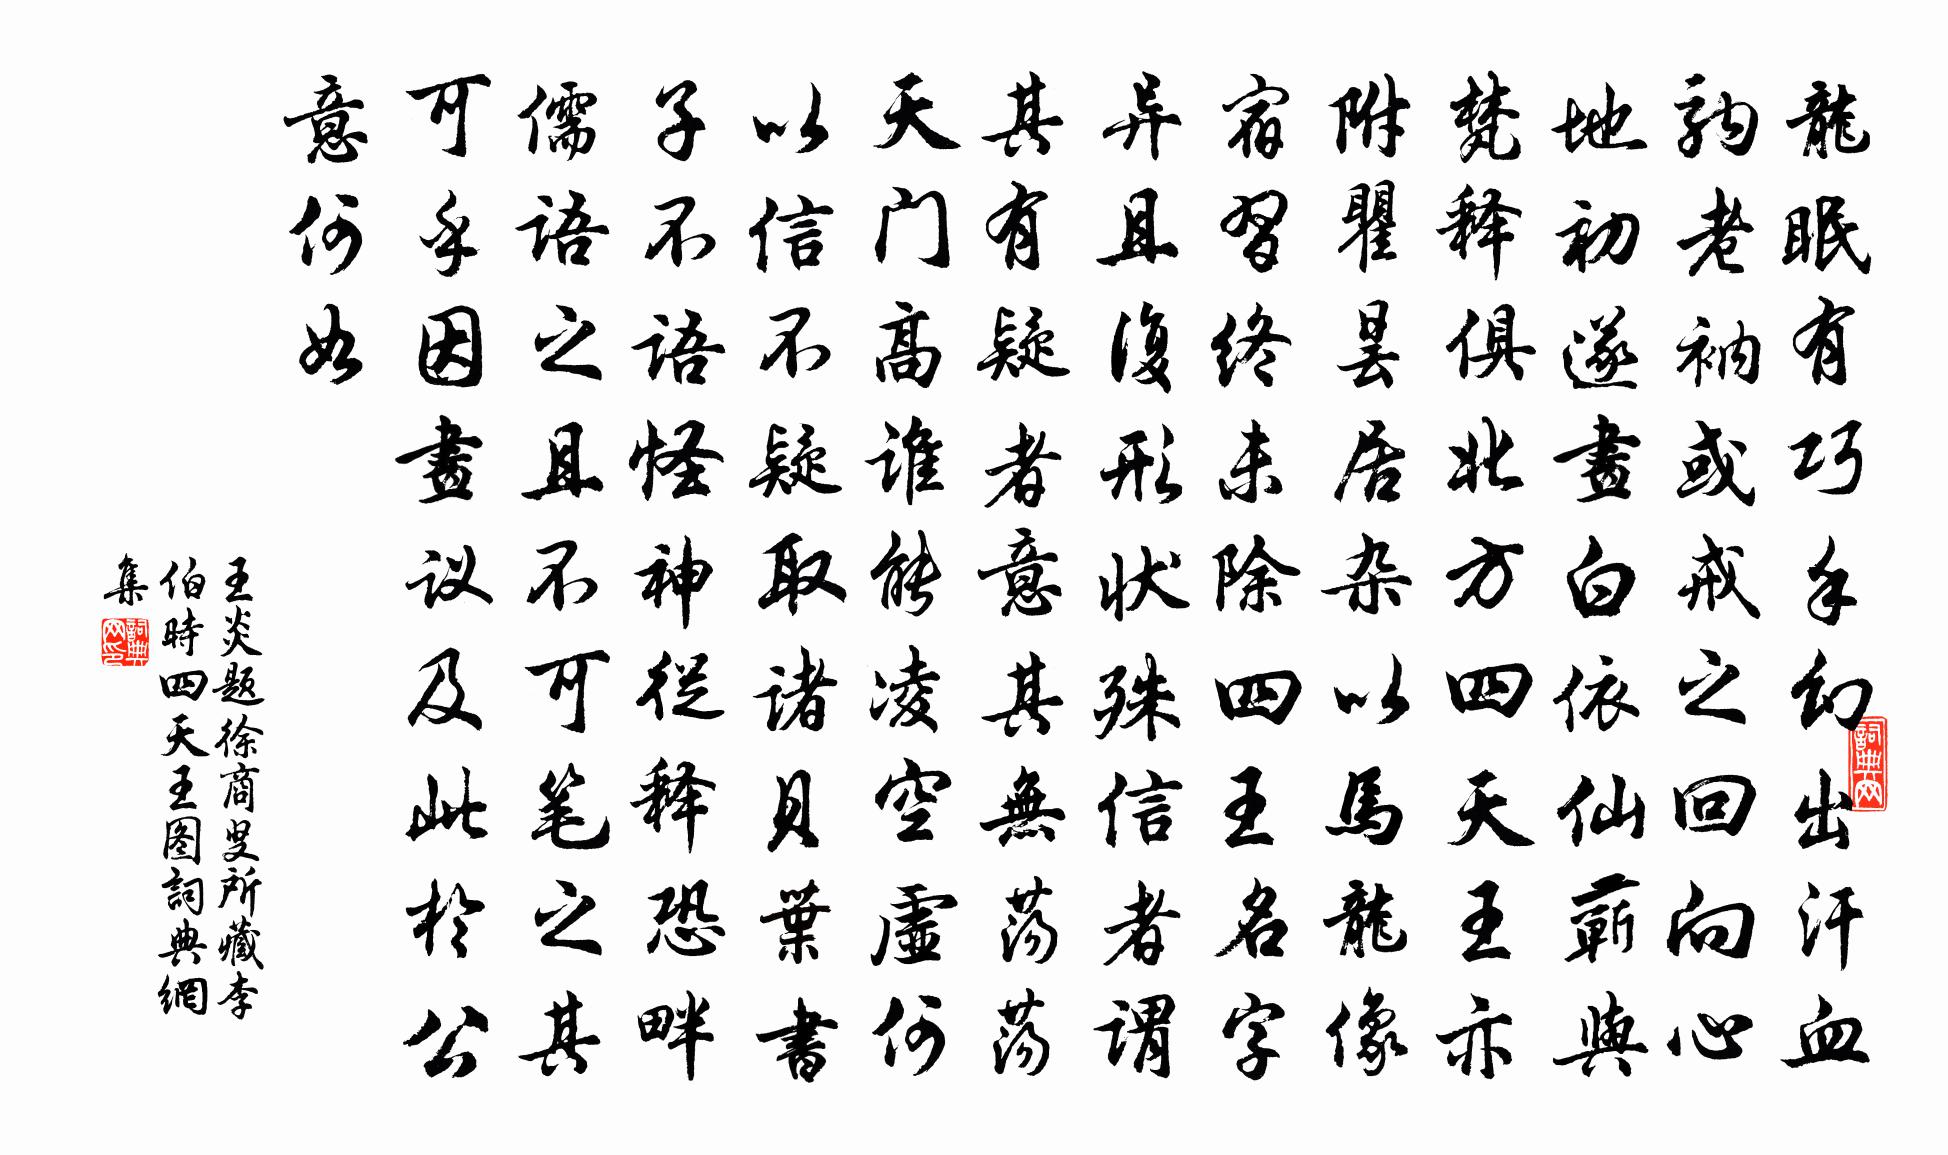 龍眠有巧手幻出汗血
駒老衲或戒之回向心
地初遂畫白依仙蘄與
梵释俱北方四天王亦
附瞿昙居杂以馬龍像
宿習终未除四王名字
异且復形状殊信者谓
其有疑者意其無荡荡
天门高谁能凌空虚何
以信不疑取诸贝葉書
子不語怪神從释恐畔
儒語之且不可笔之其
可乎因畫议及此於公
意何如
王炎题徐商叟所藏李
伯時四天王图詞典網
集
詞典网
詞典网印